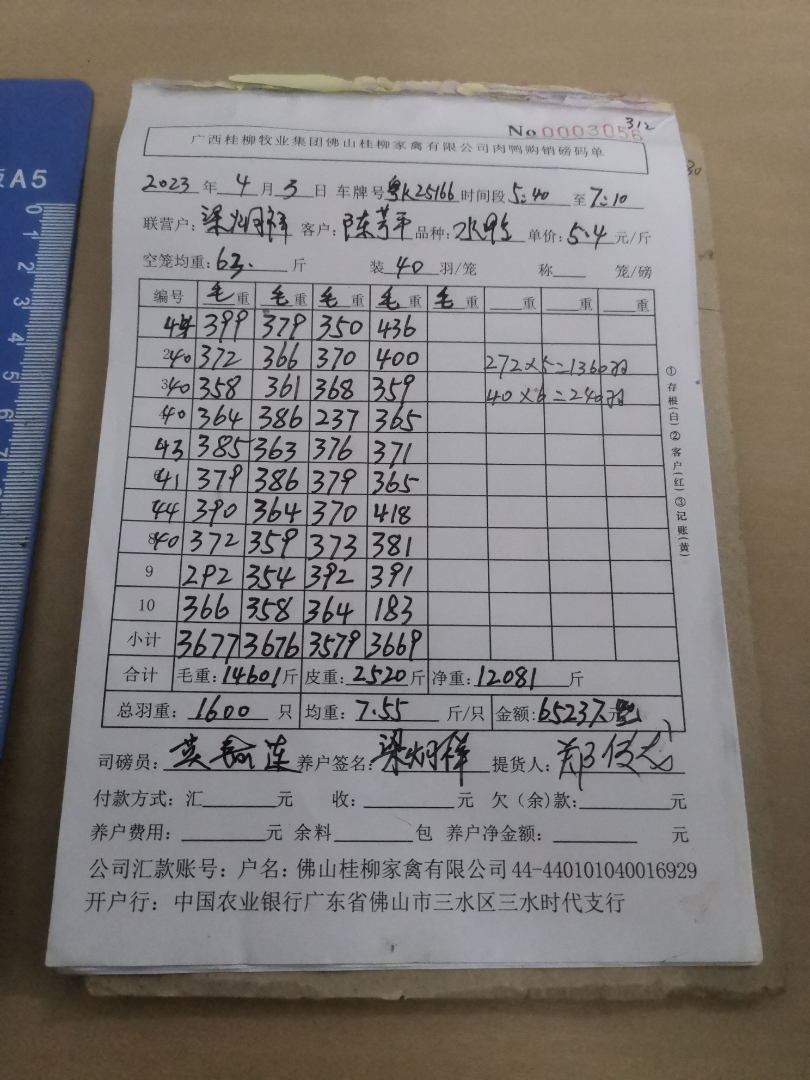 A5
No 0003056 312
广西桂柳牧业集团佛山桂柳家禽有限公司肉鸭购销磅码单
2023 年 4 月 3 日 车牌号 粤K25166 时间段 5:40 至 7:10
联营户: 梁炳祥 客户: 陈芳平 品种: 水鸭 单价: 5.4 元/斤
空笼均重: 63. 斤 装 40 羽/笼 称 笼/磅
编号 毛重 毛重 毛重 毛重 毛重 重 重 重
44 399 379 350 436
40 372 366 370 400 272×5=1360羽
40 358 361 368 359 40×6=240羽
40 364 386 237 365
43 385 363 376 371
41 379 386 379 365
44 390 364 370 418
40 372 359 373 381
9 292 354 392 391
10 366 358 364 183
小计 3677 3676 3579 3669
合计 毛重: 14601 斤 皮重: 2520 斤 净重: 12081 斤
总羽重: 1600 只 均重: 7.55 斤/只 金额: 65237元
司磅员: 养户签名: 梁炳祥 提货人:
付款方式: 汇 元 收: 元 欠(余)款: 元
养户费用: 元 余料 包 养户净金额: 元
公司汇款账号: 户名: 佛山桂柳家禽有限公司 44-440101040016929
开户行: 中国农业银行广东省佛山市三水区三水时代支行
①存根(白)②客户(红)③记账(黄)
0 1 2 3 4 5 6 7